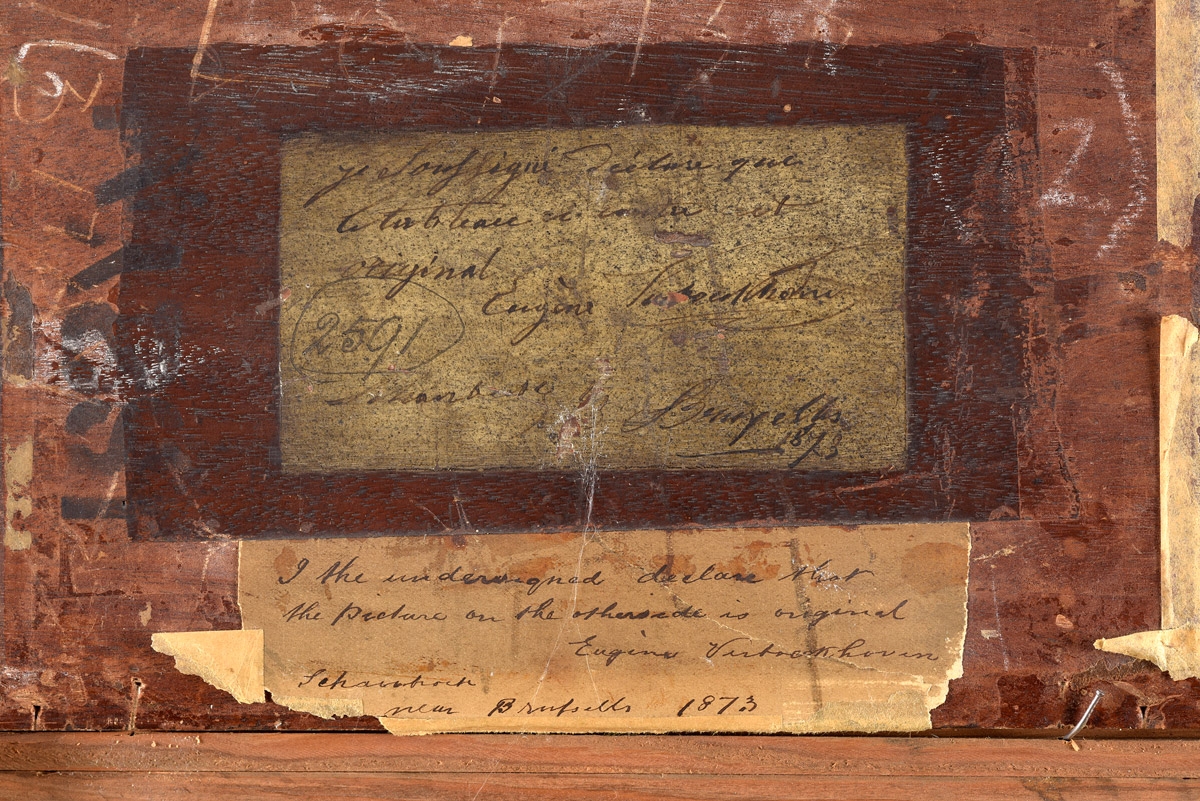 je soussigné déclare que
le tableau ci contre est
original
Eugène Verboeckhoven
2591
Schaerbeek
Bruxelles
1873
I the undersigned declare that
the Picture on the otherside is original
Eugène Verboeckhoven
near Brussells 1873